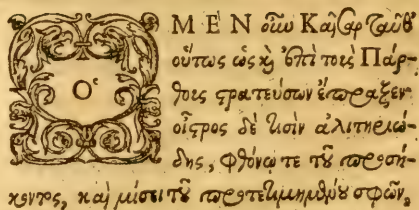 Ὁ ΜΕ᾿Ν οὖν Καῖσαρ ταῦθ᾽
οὕτως ὡς καὶ ἐπὶ τοὺς Πάρ-
θους στρατεύσων ἔπραξεν·
οἶστρος δὲ τισὶν ἀλιτηριώ-
δης, φθόνῳ τε τοῦ προσή-
κοντος, καὶ μίσει τοῦ προτετιμημένου σφῶν,